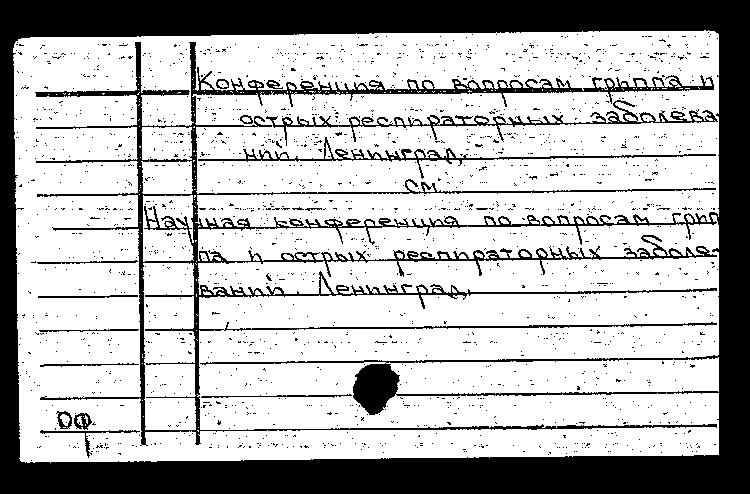 Конференция по вопросам гриппа и
острых респираторных заболева-
ний. Ленинград.
см.
Научная конференция по вопросам грип-
па и острых респираторных заболе-
ваний. Ленинград.
ОФ